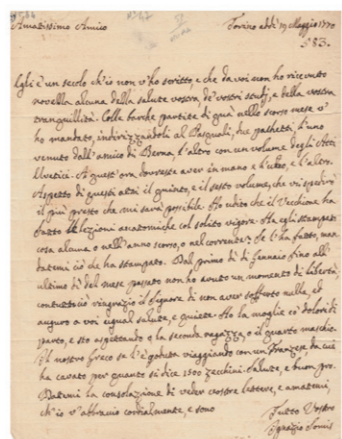 Amatissimo Amico Torino addì 19 Maggio 1770
583.
Egli è un secolo ch'io non v'ho scritto, e che da voi non ho ricevuto
novella alcuna della salute vostra, de' vostri studj, e della vostra
tranquillità. Colle barche partite di quà nello scorso mese v'
ho mandato, indirizzandoli al Pasquali, due pachetti, l'uno
venuto dall'amico di Berna, l'altro con un volume degli Atti
Elvetici. A quest'ora dovreste aver in mano e l'uno, e l'altro.
Aspetto di questi atti il quinto, e il sesto volume, che vi spedirò
il più presto che mi sarà possibile. Ho udito che il Vecchione ha
fatto le lezioni anatomiche col solito vigore. Ha egli stampato
cosa alcuna o nell'anno scorso, o nel corrente? Se l'ha fatto, man-
datemi ciò che ha stampato. Dal primo dì di Gennaio fino all'
ultimo dì del mese passato non ho avuto un momento di libertà;
contuttociò ringrazio il Signore di non aver sofferto nulla, ed
auguro a voi egual salute, e quiete. Ho la moglie co' dolori di
parto, e sto aspettando o la seconda ragazza, o il quarto maschio.
Il nostro Greco se l'è goduta viaggiando con un Franzese, da cui
ha cavato per quanto si dice 1500 zecchini. Salute, e buon pro.
Datemi la consolazione di veder vostre lettere, e amatemi,
ch'io v'abbraccio cordialmente, e sono
Tutto Vostro
Ignazio Somis